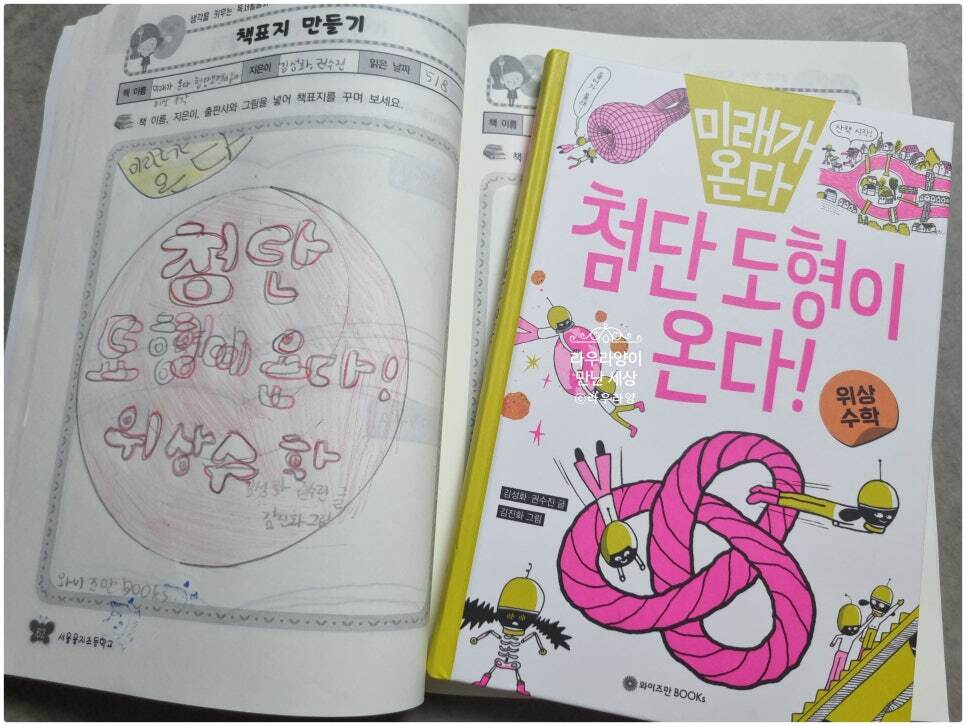 생각을 키우는 독서활동
책표지 만들기
책 이름
미래가 온다 첨단
위상 수학
지은이
김성화, 권수진
읽은 날짜
5/8
책 이름, 지은이, 출판사와 그림을 넣어 책표지를 꾸며 보세요.
미래가
온다
첨단
도형이 온다!
위상수학
김성화 권수진 글
김진화 그림
와이즈만 BOOKs
서울을지초등학교
책 이름
책
미래가
온다
산책 시작!
첨단 도형이
온다!
위상
수학
라우라양이
만난 세상
©라우라양
김성화·권수진 글
김진화 그림
와이즈만 BOOKs